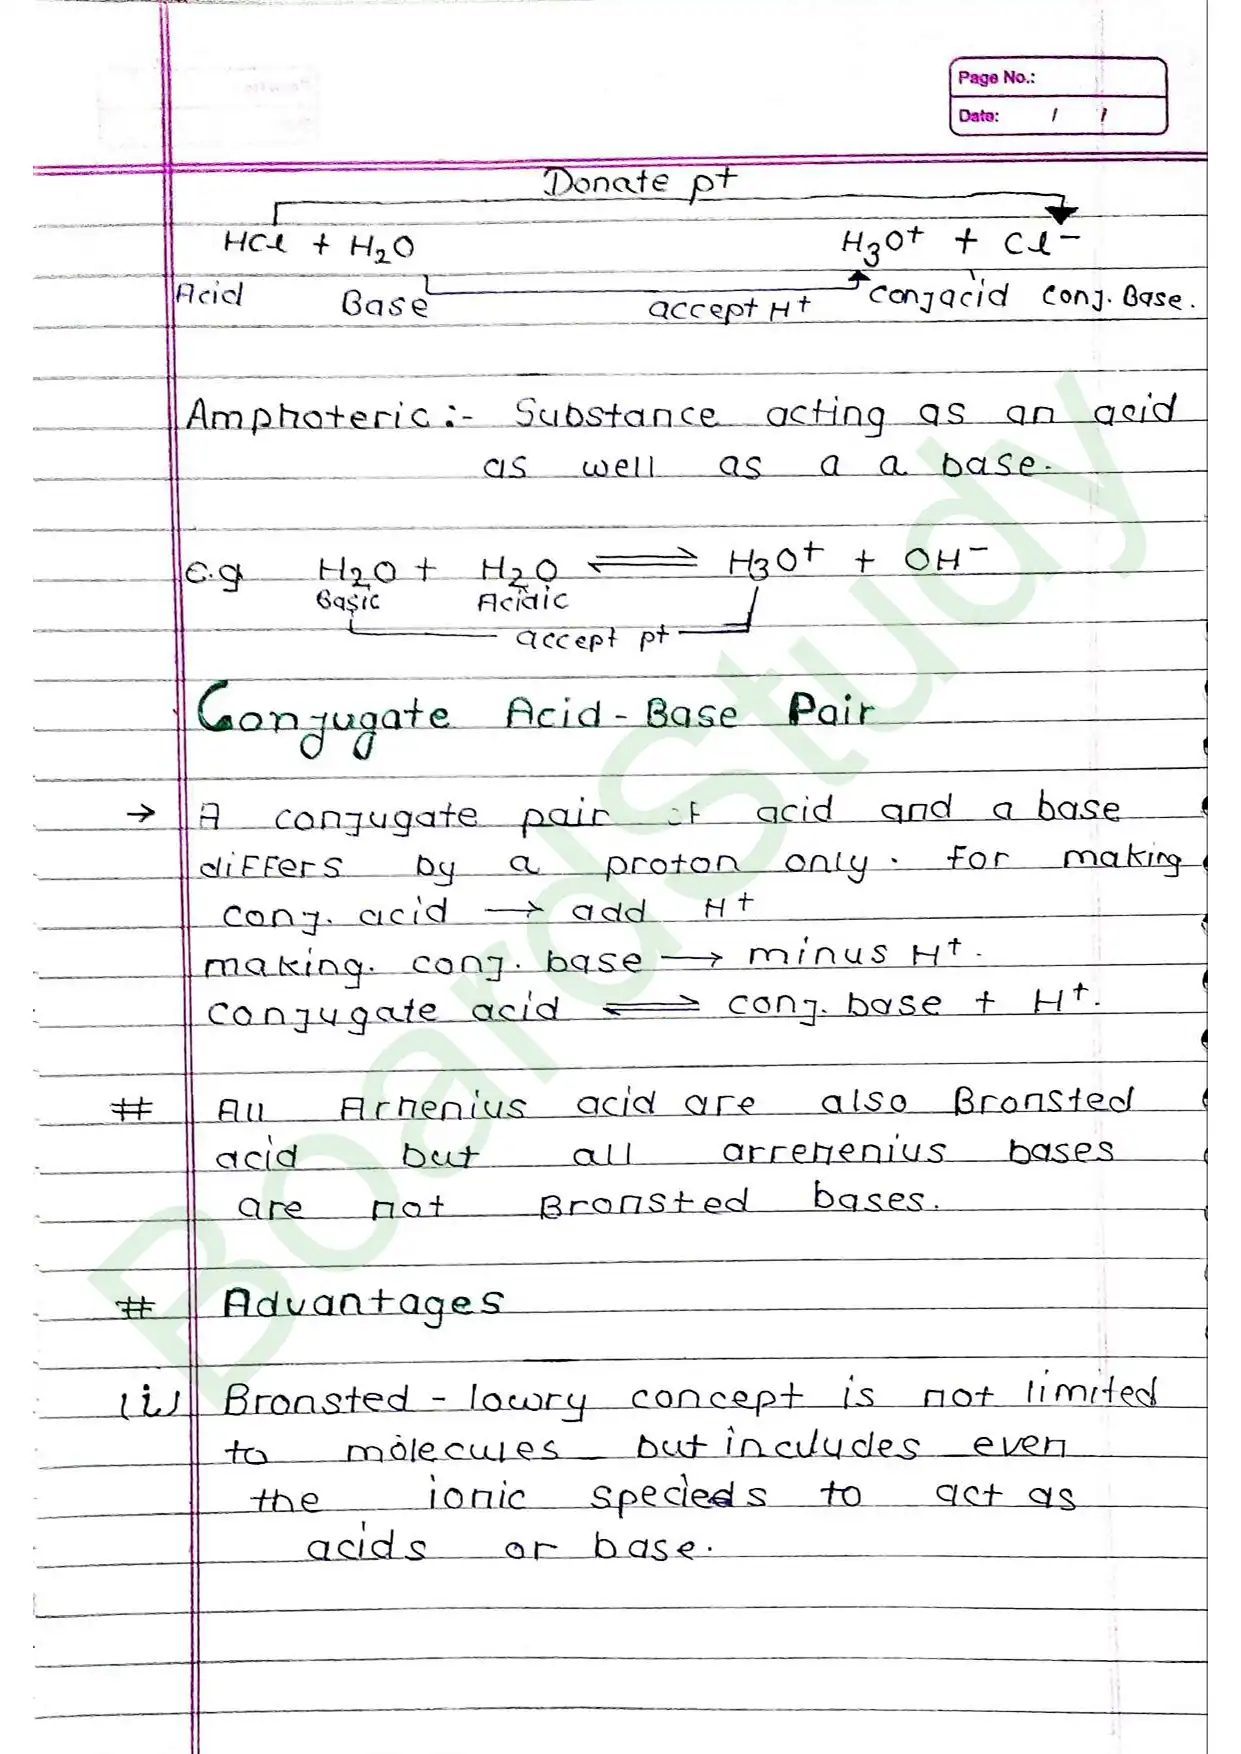 Page No.:
Date: / /
Donate p+
HCl + H2O H3O+ + Cl-
Acid Base accept H+ conjacid conj. Base.
Amphoteric:- Substance acting as an acid
as well as a a base.
e.g H2O + H2O ⇌ H3O+ + OH-
Basic Acidic
accept p+
Conjugate Acid-Base Pair
→ A conjugate pair of acid and a base
differs by a proton only. For making
conj. acid → add H+
making. conj. base → minus H+.
conjugate acid ⇌ conj. base + H+.
# All Arhenius acid are also Bronsted
acid but all arrehenius bases
are not Bronsted bases.
# Advantages
(i) Bronsted - lowry concept is not limited
to molecules but includes even
the ionic specieds to act as
acids or base.
BoardStudy